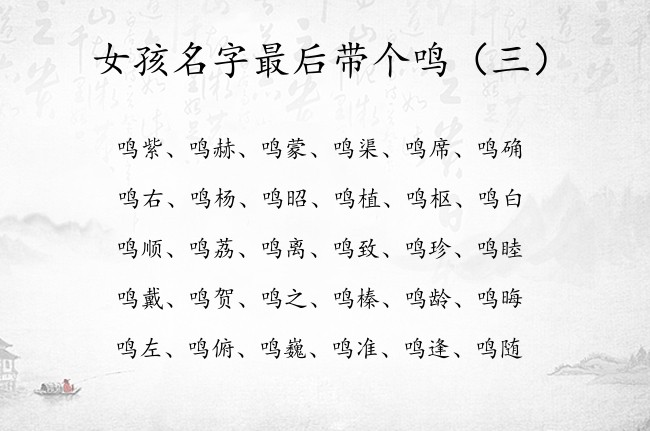 女孩名字最后带个鸣（三）
鸣紫、鸣赫、鸣蒙、鸣渠、鸣席、鸣确
鸣右、鸣杨、鸣昭、鸣植、鸣枢、鸣白
鸣顺、鸣荔、鸣离、鸣致、鸣珍、鸣睦
鸣戴、鸣贺、鸣之、鸣榛、鸣龄、鸣晦
鸣左、鸣俯、鸣巍、鸣准、鸣逢、鸣随